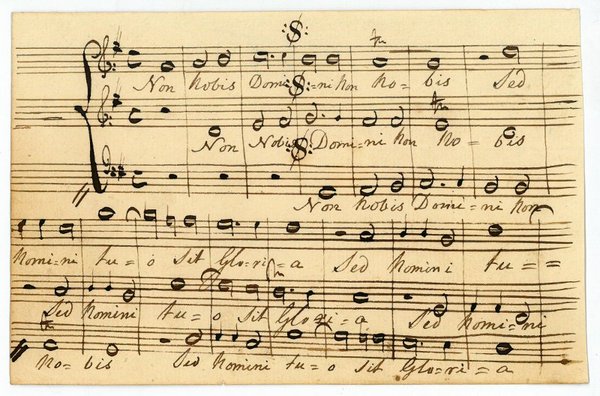 Non Nobis Domi=ni non No=bis Sed
Non Nobis Domi=ni non No=bis
Non Nobis Domi=ni non
Nomi=ni tu=o sit Glo=ri=a Sed Nomini tu==
Sed Nomini tu=o sit Glo=ri=a Sed Nomi=ni
No=bis Sed Nomini tu=o sit Glo=ri=a